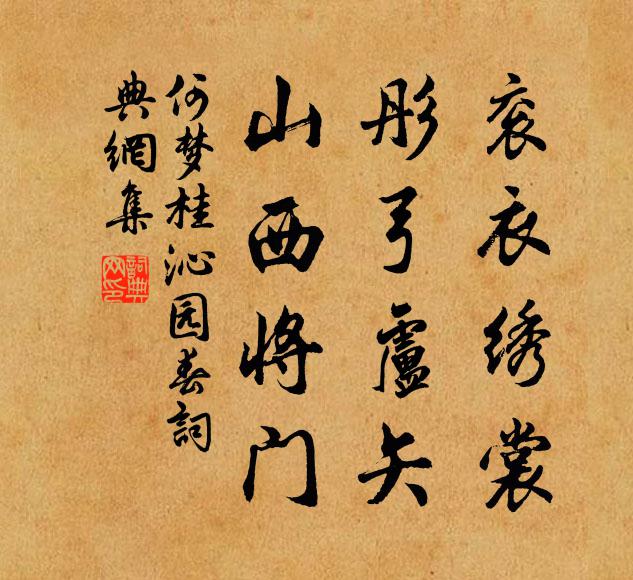 衮衣绣裳
彤弓盧矢
山西将门
何梦桂沁园春詞
典網集
詞典网印